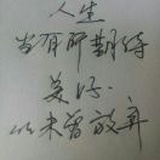 人生
当有所期待
美好
从未曾放弃